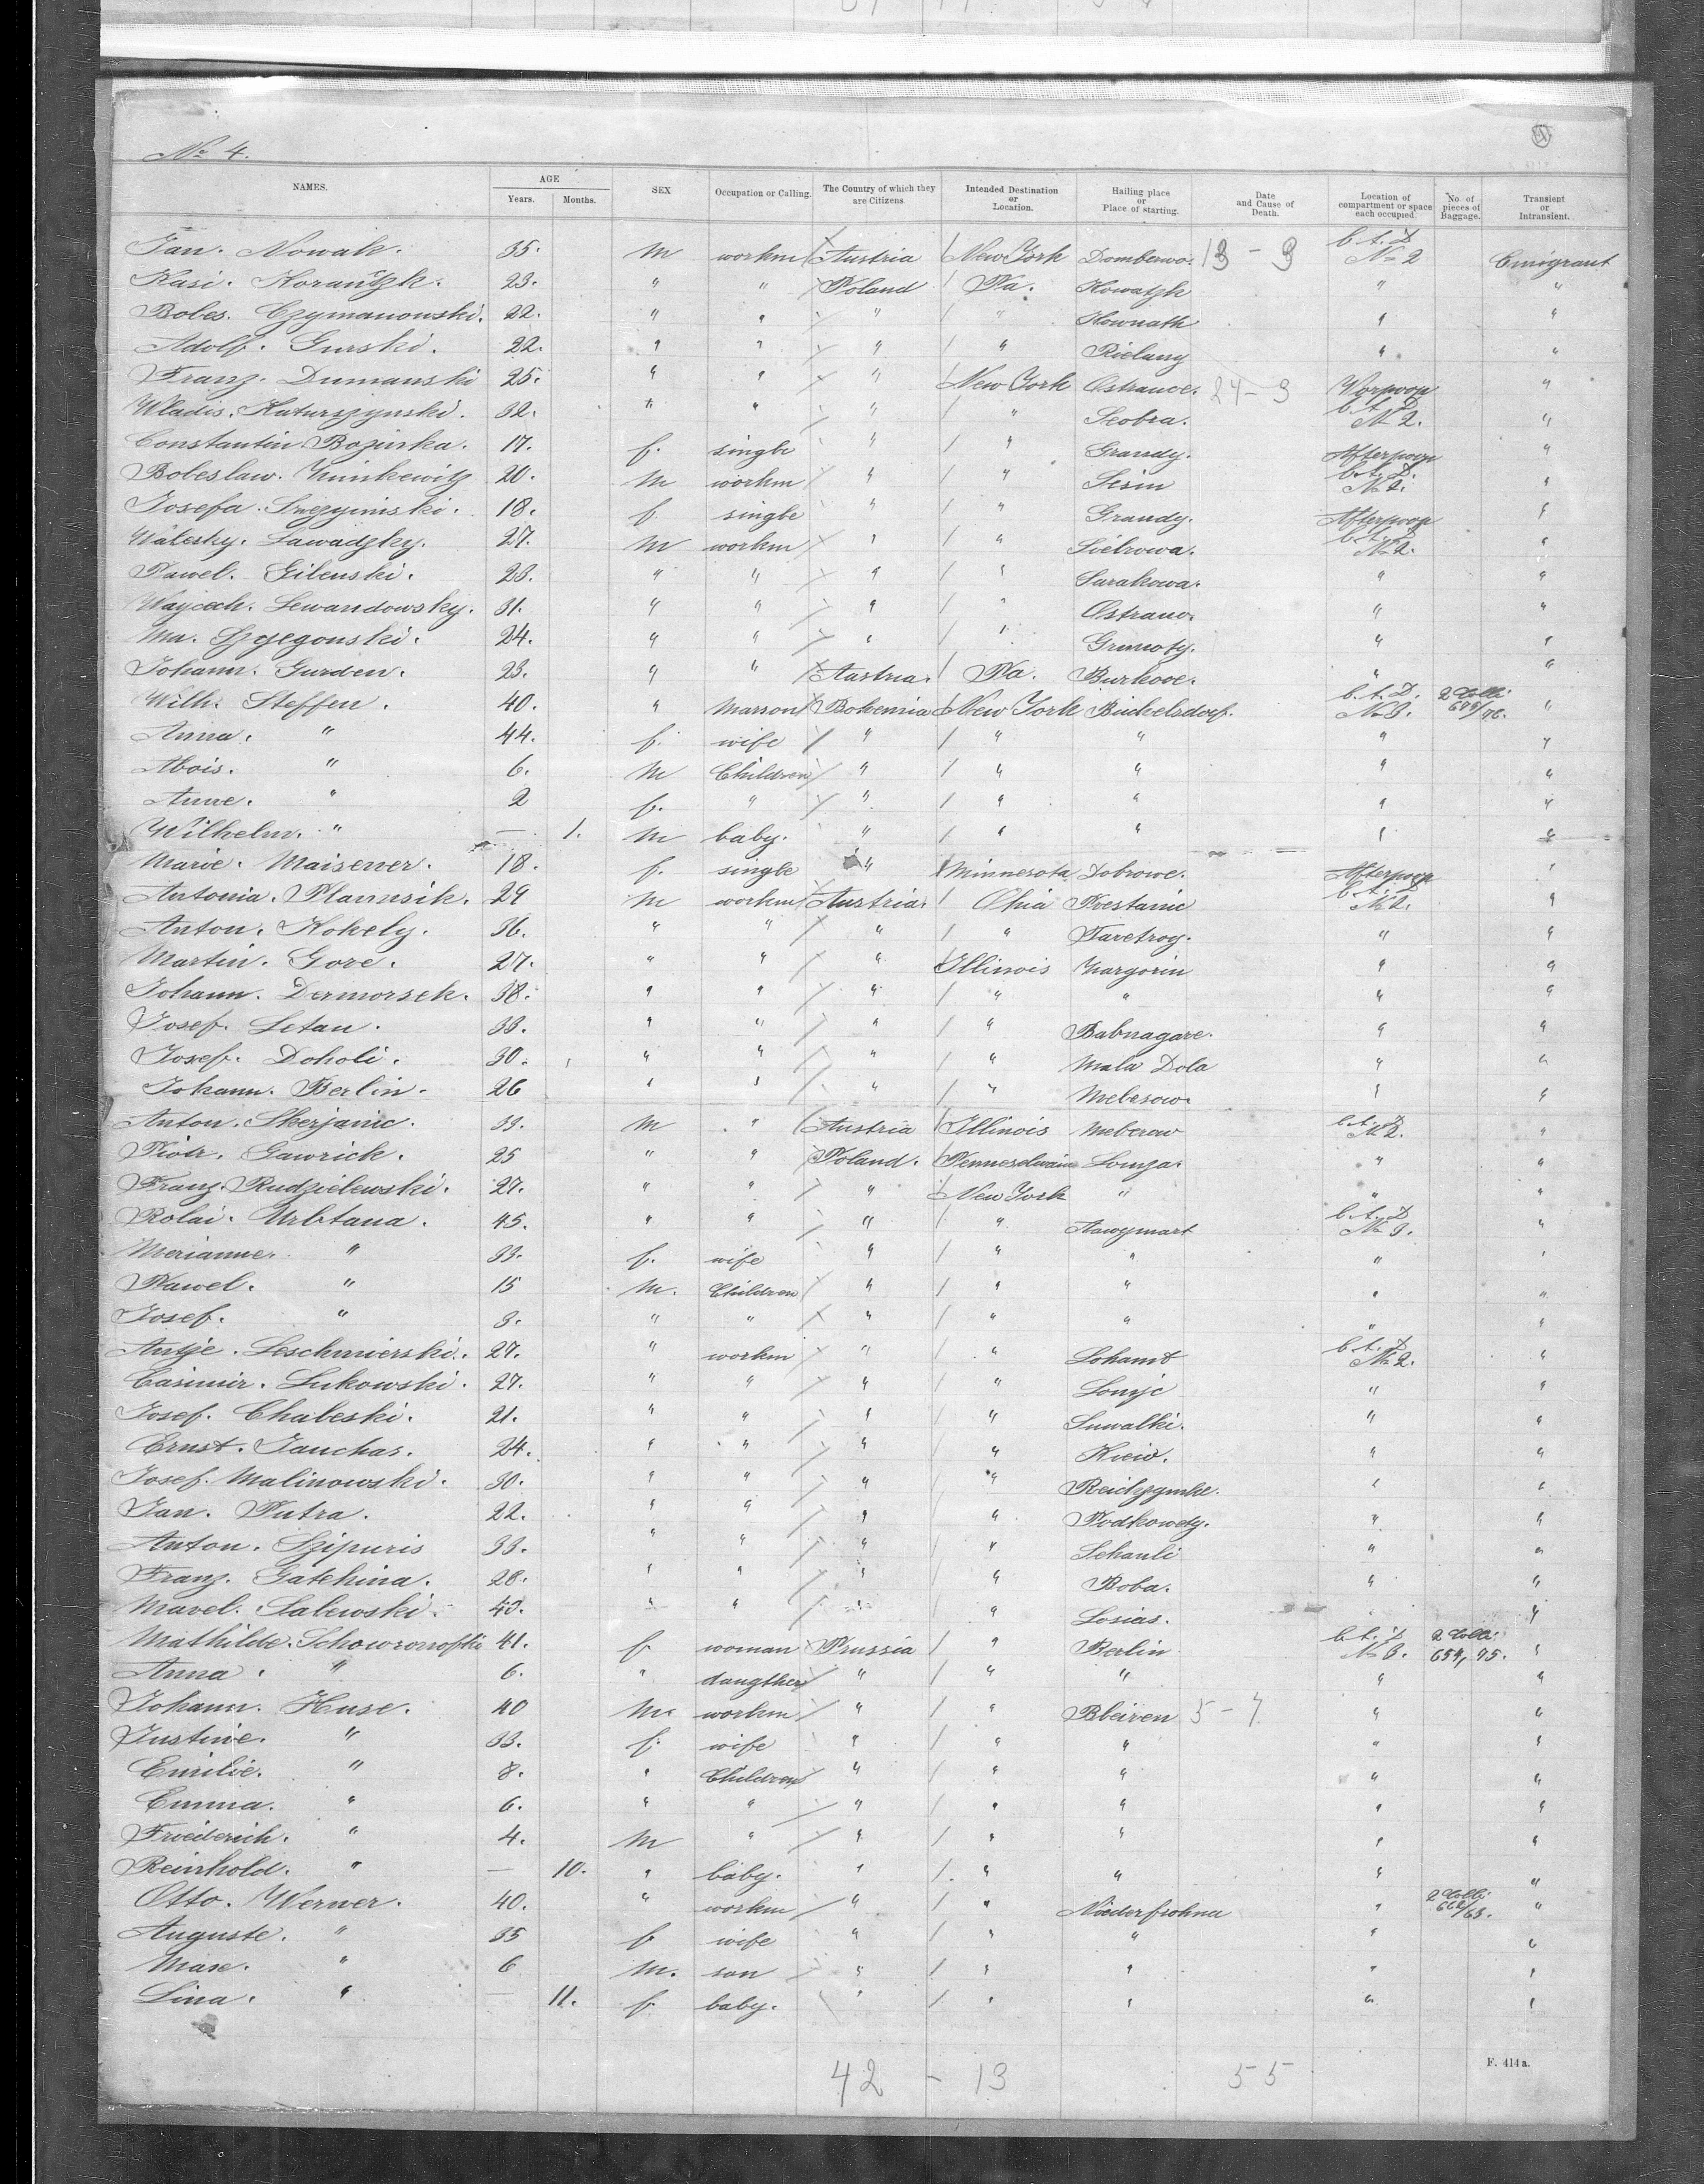 No 4.
NAMES. AGE Years. Months. SEX Occupation or Calling. The Country of which they are Citizens. Intended Destination or Location. Hailing place or Place of starting. Date and Cause of Death. Location of compartment or space each occupied No. of pieces of Baggage. Transient or Intransient.
Jan. Nowak. 35. M workm Austria New York Domberwo. 13 - 3 b.t.D No 2 Emigrant
Kasi. Korantzk. 23. " " Poland Pa. Kowatzk " "
Boles. Czymanowski. 22. " " " " Kownath " "
Adolf. Gurski. 22. " " " " Rielany " "
Franz. Dumanski 25. " " " New York Ostrance. 24-3 Vorpoop "
Wladis. Katurszynski. 32. " " " " Scobra. b.t.D No 2. "
Constantin Bozinka. 17. f. single " " Grandy. Afterpoop "
Boleslaw. Zninkewitz 20. M workm " " Sesin b.t.D. No 2. "
Josefa. 18. f single " " Grandy. Afterpoop "
Walesky. Sawadzky. 27. M workm " " Sielrowa. b.t.D No 2. "
Pawel. Gilenski. 28. " " " " Surakowa. " "
Waycech. Lewandowsky. 31. " " " " Ostrawo. " "
Mn. Szczegonski. 24. " " " " " "
Johann. Gurden. 23. " " Austria. Pa. Burkove. " "
Wilh. Steffen. 40. " Marson Bohemia New York Buckelsdorf. b.t.D. No 3. 2 Colli 675/76. "
Anna. " 44. f. wife " " " " "
Alois. " 6. M Children " " " " "
Anne. " 2 f. " " " " " "
Wilhelm. " — 1. M baby. " " " " "
Marie. Maisener. 18. f. single " Minnesota Dobrowe. Afterpoop "
Antonia. Plannsik. 29 M workm Austria. Ohia Prestanic b.t.D No 2. "
Anton. Kokely. 36. " " " " Taretroy. " "
Martin. Gore. 27. " " " Illinois Zargorin " "
Johann. Dermorsek. 38. " " " " " " "
Josef. Letan. 33. " " " " Babnagare. " "
Josef. Doholi. 30. " " " " Mala Dola " "
Johann. Berlin. 26 " " " " Mebesow. " "
Anton. Skerjanic. 33. M " Austria Illinois Meberow b.t.D No 2. "
Piotr. Gawrick. 25 " " Poland. Lomza. " "
Franz. Rudzielewski. 27. " " " New York " " "
Rolai. Urbtana. 45. " " " " Nawymart b.t.D No 3. "
Merianne. " 33. f. wife " " " " "
Pawel. " 15 M. Children " " " " "
Josef. " 3. " " " " " " "
Antje. Leschmierski. 27. " workm " " Lohamt b.t.D No 2. "
Casimir. Lukowski. 27. " " " " Lomjc " "
Josef. Chaleski. 21. " " " " Suwalki. " "
Ernst. Jauchas. 24. " " " " Kiew. " "
Josef. Malinowski. 30. " " " " " "
Jan. Putra. 22. " " " " Podkowety. " "
Anton. Szipuris 33. " " " " Schauli " "
Franz. Gatehina. 28. " " " " Roba. " "
Mavel. Salewski. 43. " " " " Losias. "
Mathilde. Schowronofski 41. f woman Prussia " Berlin b.t.D No 3. 2 Colli. 654, 75. "
Anna. " 6. " daugther " " " " "
Johann. Huse. 40 M. workm " " Bleiren 5 - 7 " "
Justine. " 33. f. wife " " " " "
Emilie. " 8. " Children " " " " "
Emma. " 6. " " " " " " "
Friederich. " 4. M " " " " " "
Reinhold. " — 10. " baby. " " " " "
Otto. Werner. 40. " workm " " Niederfrohna " 2 Colli. 662/63. "
Auguste. " 35 f wife " " " " "
Max. " 6 M. son " " " " "
Lina. " — 11. f. baby. " " " " "
42 - 13 55
F. 414a.